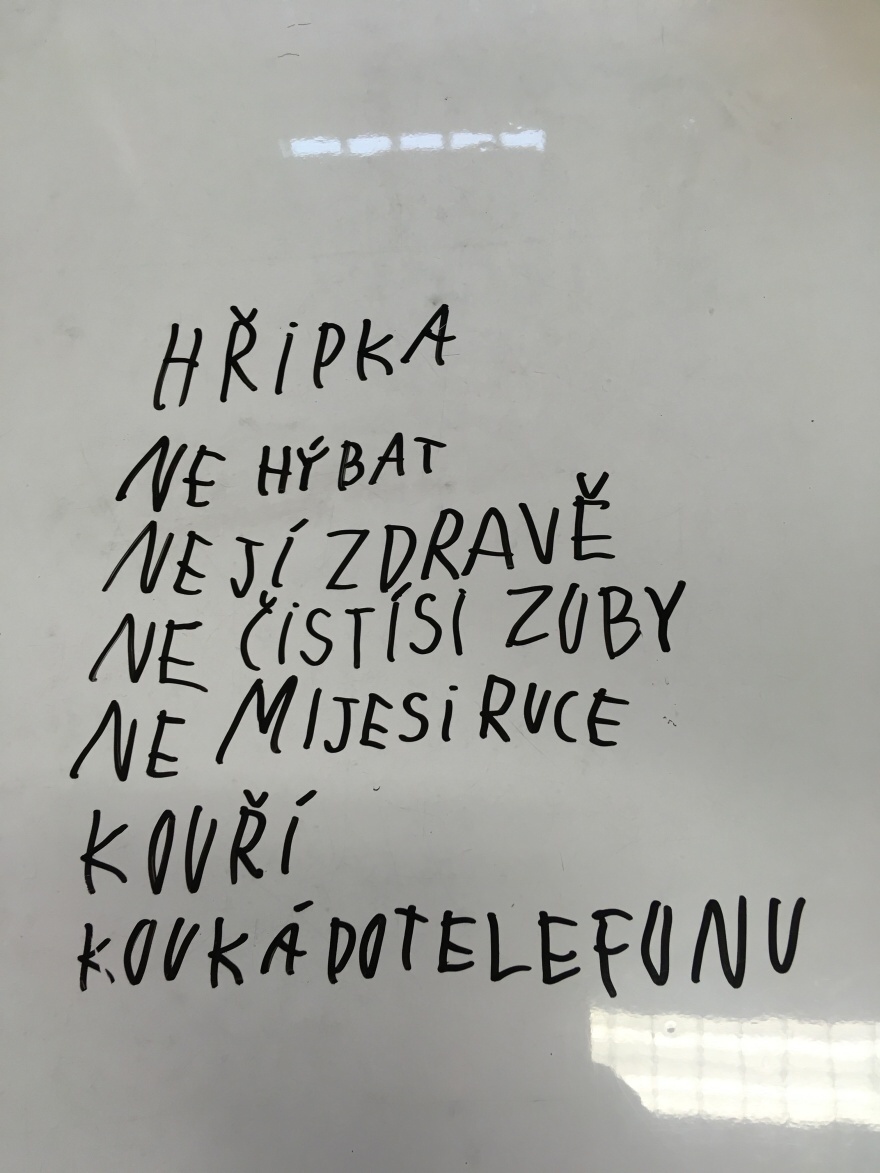 HŘIPKA
NE HÝBAT
NEJÍ ZDRAVĚ
NE ČISTÍSI ZUBY
NE MIJESI RUCE
KOUŘÍ
KOUKÁDOTELEFUNU